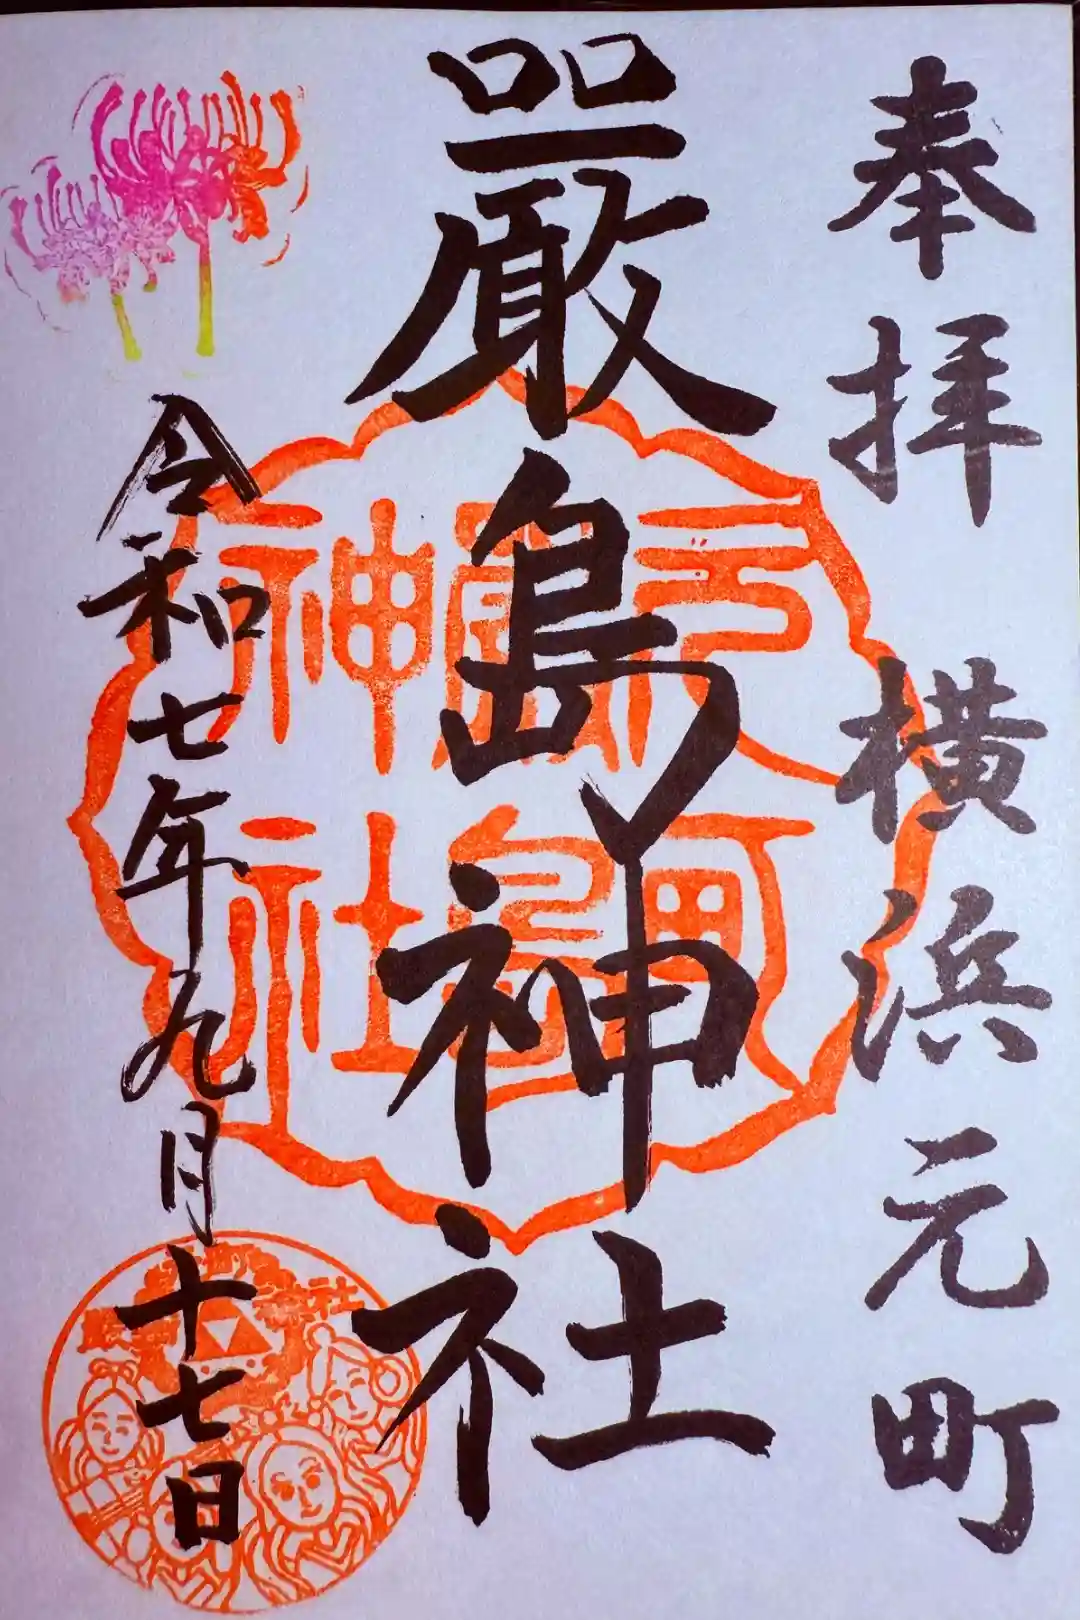 奉拝 横浜元町
厳島神社
元町
嚴島
神社
令和七年九月十七日